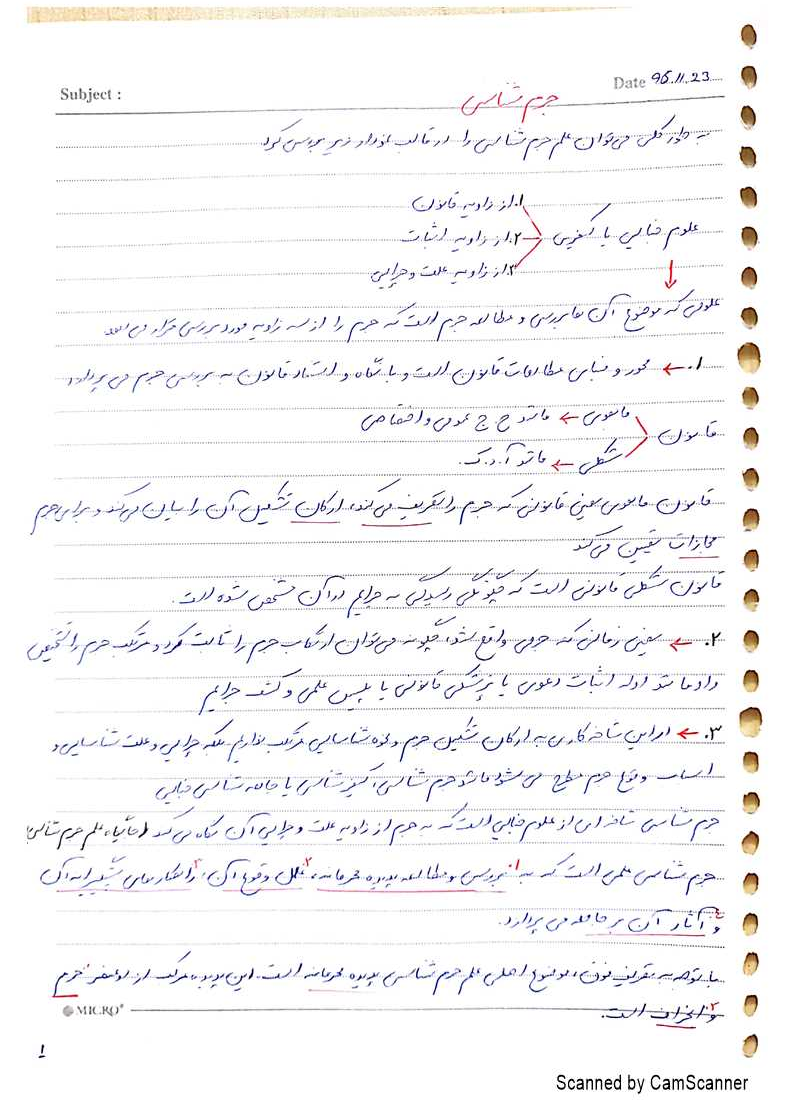 Subject :
Date 96.11.23
جرم شناسی
به طور کلی می‌توان علم جرم شناسی را در قالب موارد زیر بررسی کرد
۱. از زاویه قانون
علوم جنایی یا کیفری ۲. از زاویه اثبات
۳. از زاویه علت و چرایی
علومی که موضوع آن ها بررسی و مطالعه جرم است که جرم را از سه زاویه مورد بررسی قرار می دهد
۱. ← محور و مبنای مطالعات قانون است و با نگاه و استناد قانون به بررسی جرم می پردازد
ماهوی ← مانند ح ج عمومی و اختصاصی
قانون
شکلی ← مانند آ.د.ک.
قانون ماهوی یعنی قانونی که جرم را تعریف می‌کند، ارکان تشکیل آن را بیان می‌کند و برای جرم
مجازات تعیین می‌کند
قانون شکلی قانونی است که چگونگی رسیدگی به جرایم در آن مشخص شده است.
۲. ← یعنی زمانی که جرمی واقع شد، چگونه می‌توان ارتکاب جرم را ثابت کرد و مرتکب جرم را تشخیص
داد مانند ادله اثبات دعوی یا پزشکی قانونی یا پلیس علمی و کشف جرایم
۳. ← در این شاخه کاری به ارکان تشکیل جرم و نحوه شناسایی مرتکب نداریم بلکه چرایی و علت شناسایی و
اسباب وقوع جرم مطرح می شود مانند جرم شناسی، کیفرشناسی یا جامعه شناسی جنایی
جرم شناسی شاخه ای از علوم جنایی است که به جرم از زاویه علت و چرایی آن نگاه می‌کند ( علم جرم شناسی)
جرم شناسی علمی است که به ۱ بررسی و مطالعه پدیده مجرمانه، ۲ علل وقوع آن، ۳ راهکارهای پیشگیرانه آن
۴ و آثار آن بر جامعه می پردازد.
با توجه به تعریف فوق، موضوع اصلی علم جرم شناسی پدیده مجرمانه است. این پدیده مرکب از دو عنصر ۱ جرم
۲ و انحراف است.
MICRO
۱
Scanned by CamScanner